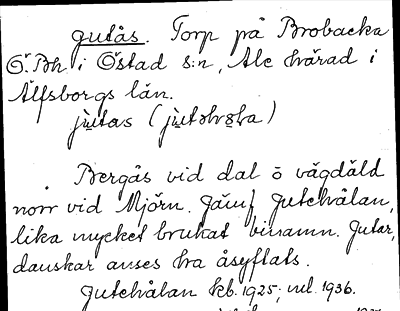 gutås. Torp på Brobacka
Ö. Bh i Östad s:n, Ale härad i
Älfsborgs län.
jutas (jutåkråka)
Bergås vid dal ö vägdäld
norr vid Mjörn. Jämf Gutehålan,
lika mycket brukat binamn. Gutar,
danskar anses ha åsyftats.
Gutehålan kb. 1925; uel. 1936.